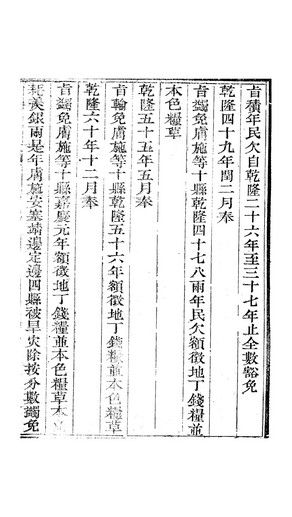 旨積年民欠自乾隆二十六年至三十七年止全數豁免
乾隆四十九年閏二月奉
旨蠲免膚施等十縣乾隆四十七八兩年民欠額徵地丁錢糧並
本色糧草
乾隆五十五年五月奉
旨輪免膚施等十縣乾隆五十六年額徵地丁錢糧並本色糧草
乾隆六十年十二月奉
旨蠲免膚施等十縣嘉慶元年額徵地丁錢糧並本色糧草本並
耗羨銀兩是年膚施安塞靖邊定邊四縣被旱灾除按分數蠲免